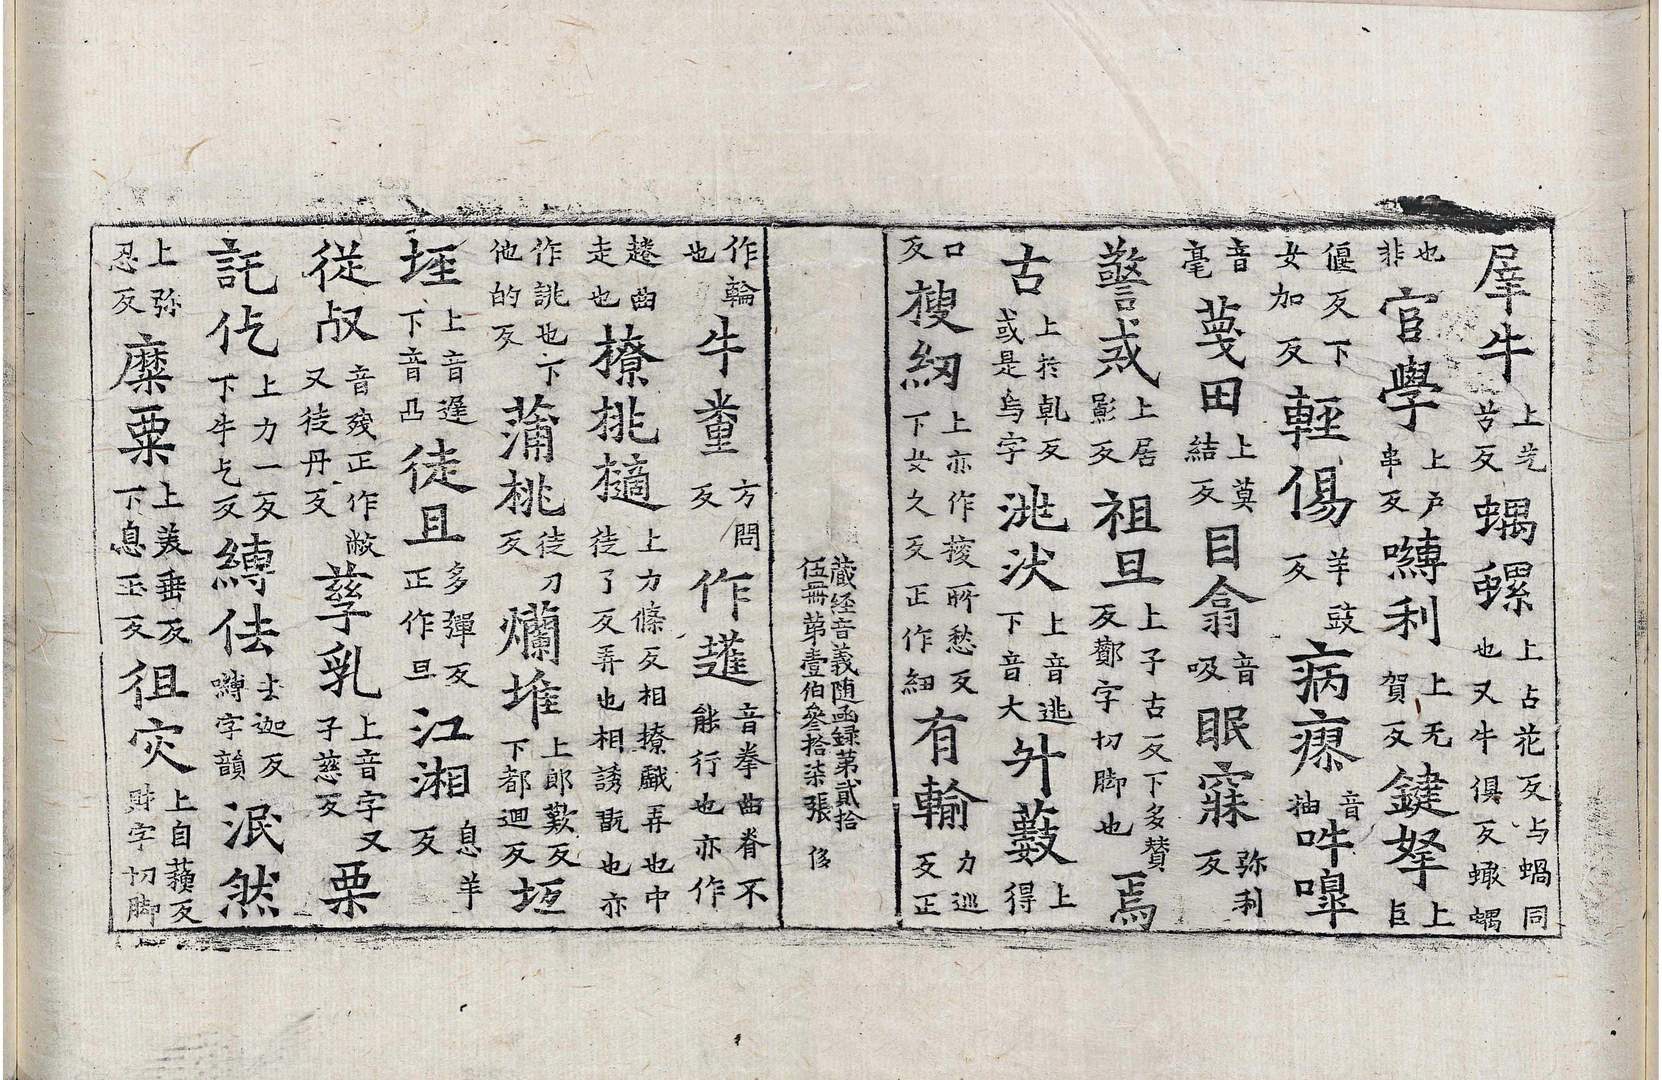 犀牛上先苦反蝸螺上占花反与蝸同也又牛俱反蠍蝸
也非官學上戶串反嚩利上无賀反鍵拏上巨
偃反下女加反輕傷羊豉反病瘳音抽吽嘷
音毫薎田上莫結反目翕音吸眠寐弥利反
警戒上居影反祖旦上子古反下多賛反酇字切脚也焉
古上扵乹反或是烏字洮汏上音逃下音大外藪上得
口反搜紉上亦作捘所愁反下女久反正作紐有輸力巡反正
藏経音義随函録第貳拾伍冊 第壹伯叄拾柒張 侈
作輪也牛糞方問反作𨆪音拳曲脊不能行也亦作
趢曲走也撩挑擿上力條反相撩戲弄也中徒了反弄也相誘䛒也亦
作誂也下他的反蒲桃徒刀反爛堆上郎歎反下都迴反垤
坥上音遲下音凸徒旦多彈反正作旦江湘息羊反
從𣦼音殘正作㪇又徒丹反孳乳上音字又子慈反栗
託仡上力一反下牛乞反縛佉去迦反嚩字韻泯然
上弥忍反糜粟上美垂反下息玉反徂灾上自蘓反財字切脚